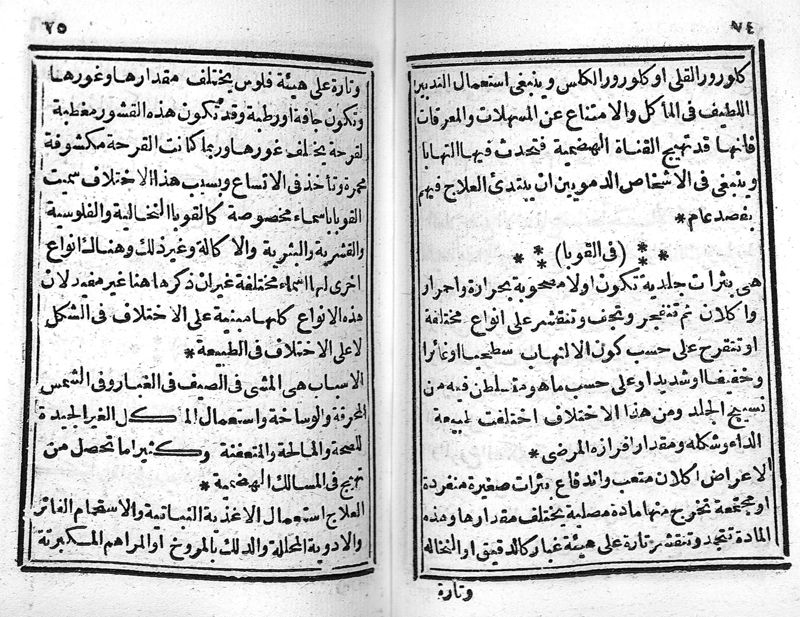 ٧٤
كلورور القلى او كلورور الكلس وينبغى استعمال التدبير
اللطيف فى المأكل والامتناع عن المسهلات والمعرقات
فانها قد تهيج القناة الهضمية فتحدث فيها التهابا
وينبغى فى الاشخاص الدمويين ان يبتدئ العلاج فيهم
بفصد عام *
* * * (فى القوبا) * * *
هى بثرات جلدية تكون اولا مصحوبة بحرارة واحمرار
واكلان ثم تنفجر وتجف وتنقشر على انواع مختلفة
او تتقرح على حسب كون الالتهاب سطحيا او غائرا
وخفيفا او شديدا وعلى حسب ما هو متسلطن فيه من
نسيج الجلد ومن هذا الاختلاف اختلفت طبيعة
الداء وشكله ومقدار افرازه المرضى *
الاعراض اكلان متعب واندفاع بثرات صغيرة منفردة
او مجتمعة تخرج منها مادة مصلية يختلف مقدارها وهذه
المادة تتجمد وتنقشر تارة على هيئة غبار كالدقيق او النخاله
وتارة
٧٥
وتارة على هيئة فلوس يختلف مقدارها وغورها
وتكون جافة او رطبة وقد تكون هذه القشور مغطية
لقرحة يختلف غورها وربما كانت القرحة مكشوفة
محمرة وتأخذ فى الاتساع وبسبب هذا الاختلاف سميت
القوبا باسماء مخصوصة كالقوبا النخالية والفلوسية
والقشرية والبثرية والاكالة وغير ذلك وهناك انواع
اخرى لها اسماء مختلفة غير ان ذكرها هنا غير مفيد لان
هذه الانواع كلها مبنية على الاختلاف فى الشكل
لا على الاختلاف فى الطبيعة *
الاسباب هى المشى فى الصيف فى الغبار وفى الشمس
المحرقة والوساخة واستعمال المآكل الغير الجيدة
للصحة والمالحة والمتعفنة وكثيرا ما تحصل من
تهيج فى المسالك الهضمية *
العلاج استعمال الاغذية النباتية والاستحمام الفاتر
والادوية المحللة والدلك بالمروخ او المراهم المكبرتة